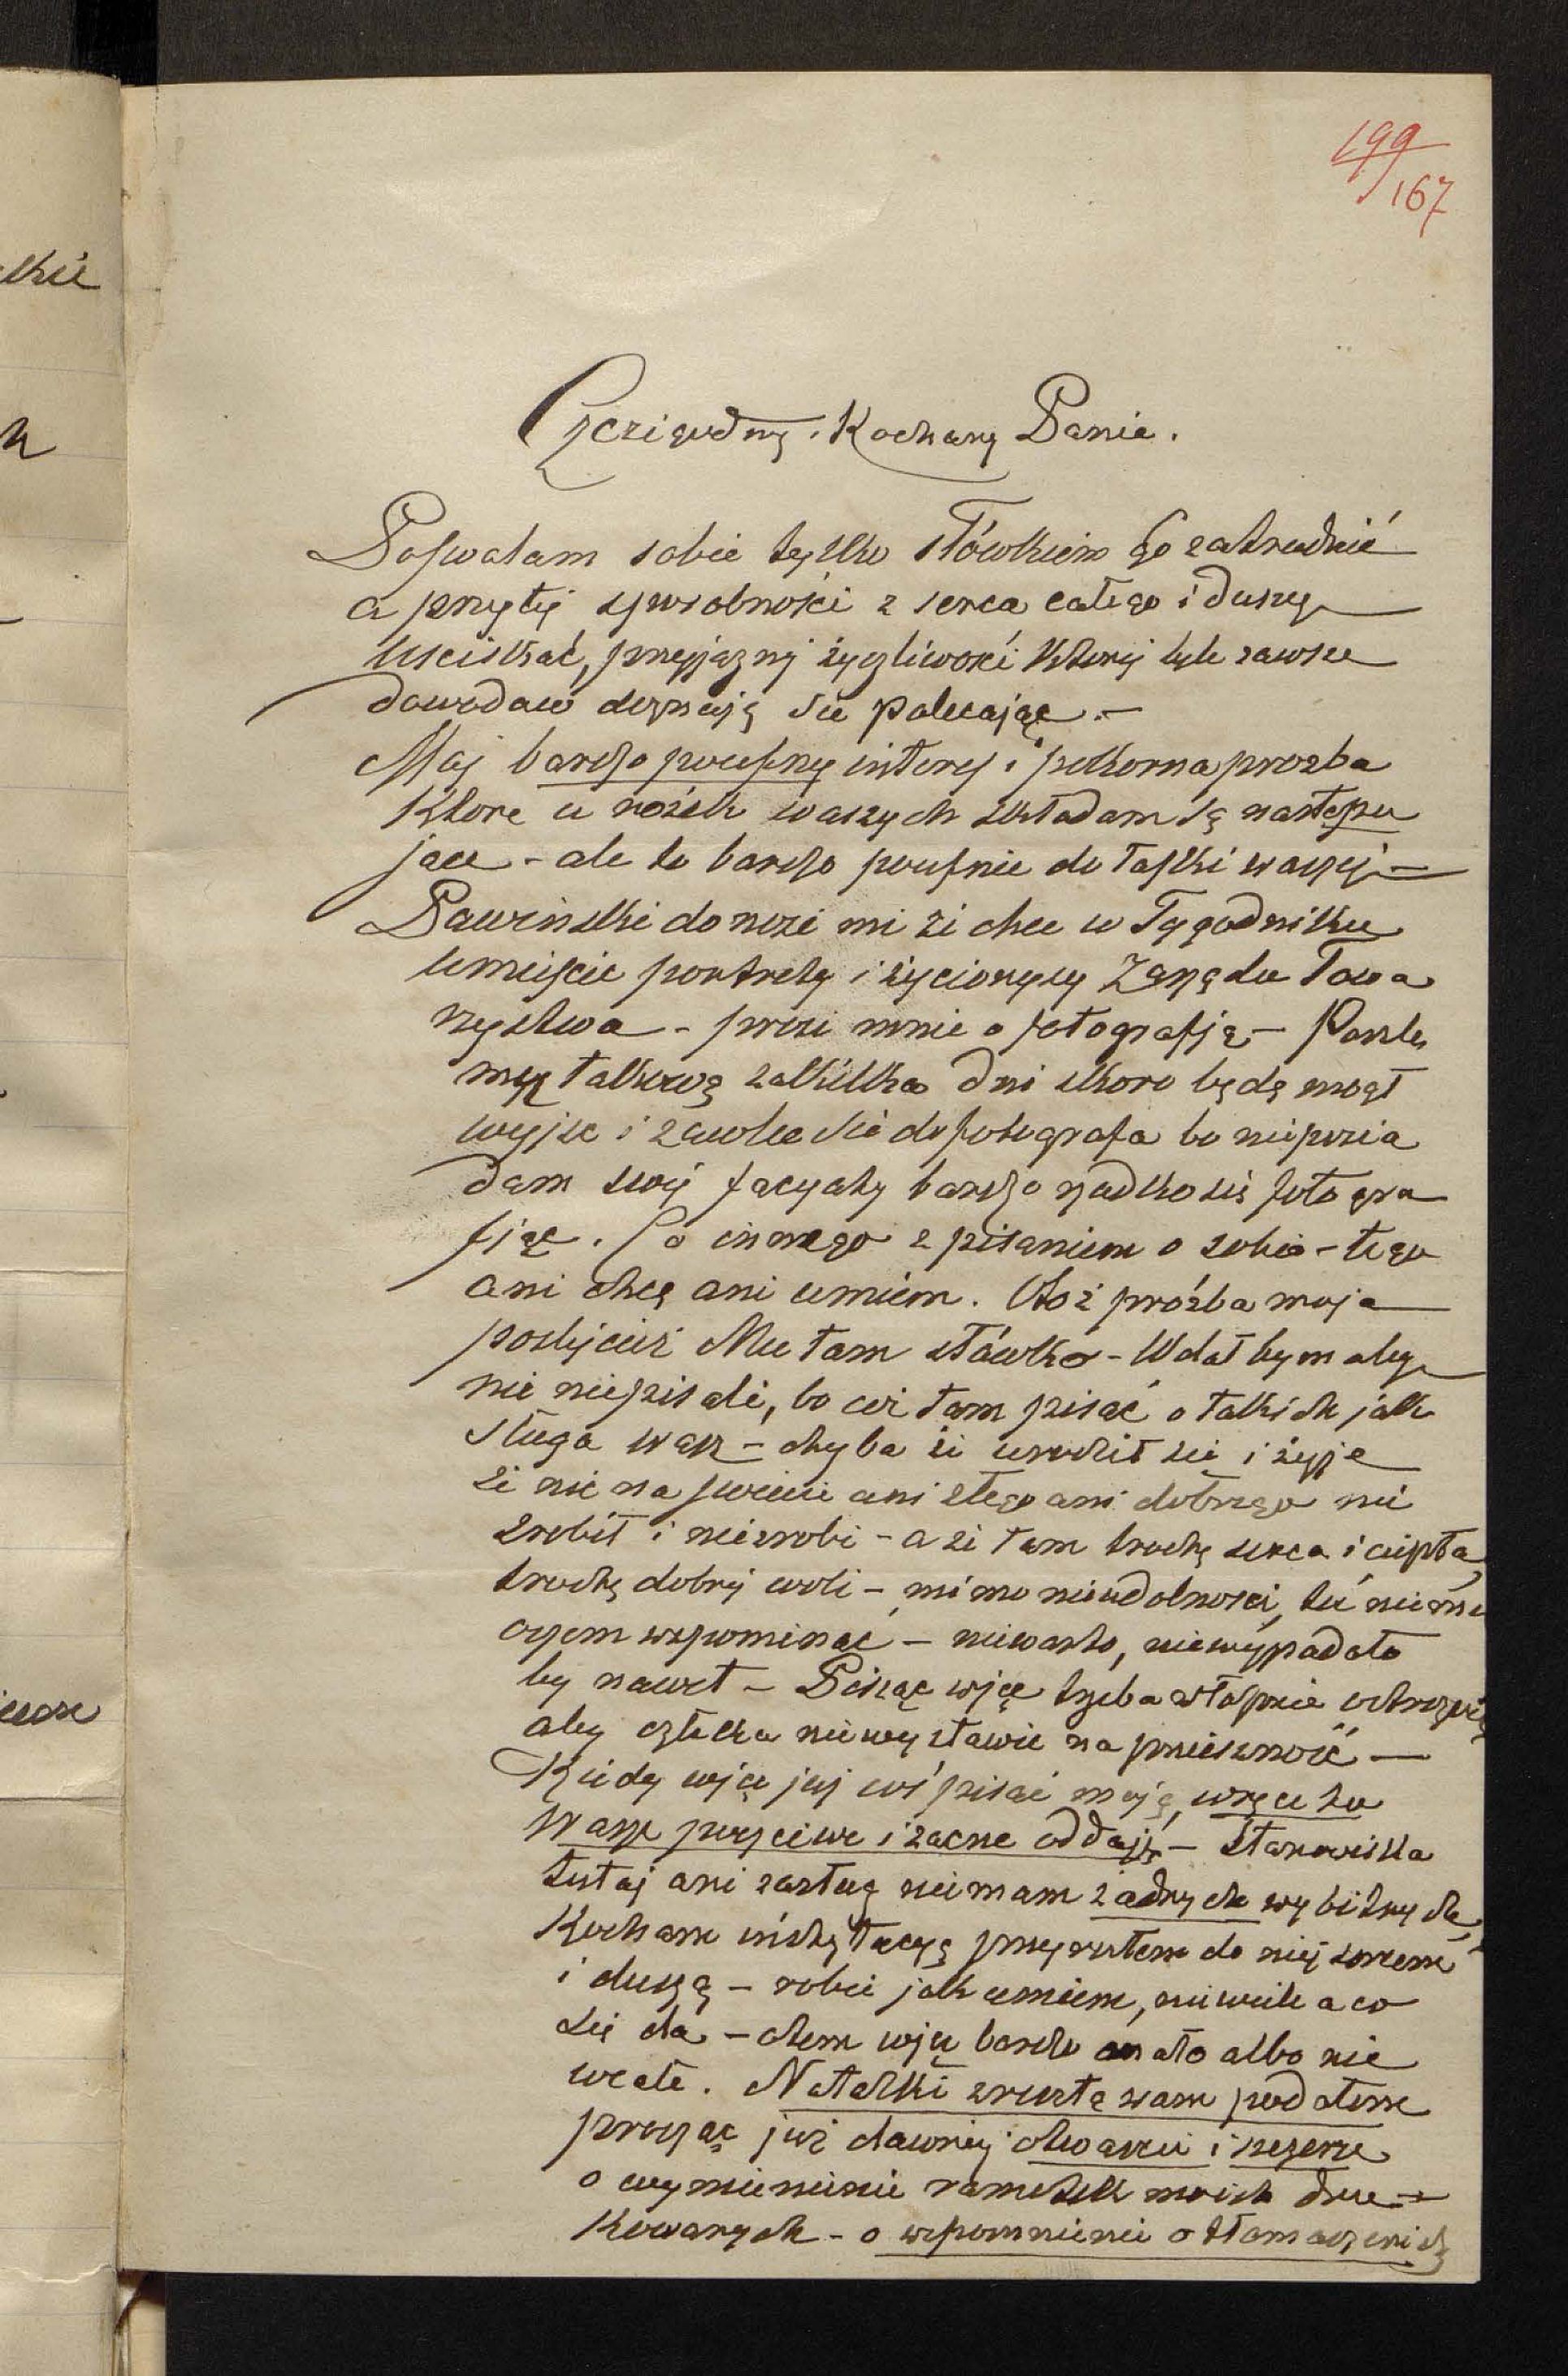 199
167
Czcigodny. Kochany Panie.
Poswalam sobie tylko słówkiem Go zatrudnić
a przytej sposobności z serca całego i duszy
usciskać, przyjaznej życzliwości której tyle zawsze
dowodow doznaję sie polecając. —
Moj bardzo poufny interes i pokorna prozba
które u nóżek waszych składam są następu
jace - ale to bardzo poufnie do łaski waszej —
Pawinski donosi mi że chce w Tygodniku
umieścic portrety i życiorysy Zarządu Towa
rzystwa - prosi mnie o fotografję — Poszlę
mu takową zakilka dni skoro będę mógł
wyjsc i zawlec sie do fotografa bo nieposia
dam swej facyaty bardzo rzadko się fotogra
fjąc. Co innego z pisaniem o sobie - tego
ani chcę ani umiem. Otoż prośba moja
poslijcież Mu tam słówko - Wolał bym aby
nic niepisali, bo coż tam pisać o takich jak
sługa wasz - chyba że urodził sie i żyje
że nic na swiecie ani złego ani dobrego nie
zrobił i niezrobi - a że tam trochę serca i ciepła,
trochę dobrej woli - mimo nieudolnosci, tu niema
oczem wspominać - niewarto, niewypadało
by nawet - Pisząc więc trzeba właśnie ostrożnie
aby człeka niewystawic na śmieszność —
Kiedy więc już coś pisać mają, wręce to
Wasze poczciwe i zacne oddaję — Stanowiska
tutaj ani zasług niemam żadnych wybitnych,
Kocham instytucyę przyrosłem do niej sercem
i duszą - robie jak umiem, niewiele a co
się da - otem więc bardzo mało albo nic
wcale. Notatki zresztą wam podałem
prosząc już dawniej otwarcie i szczerze
o wymienienie ramotek moich dru-
kowanych - o wspomnienie o tłomaczeniach